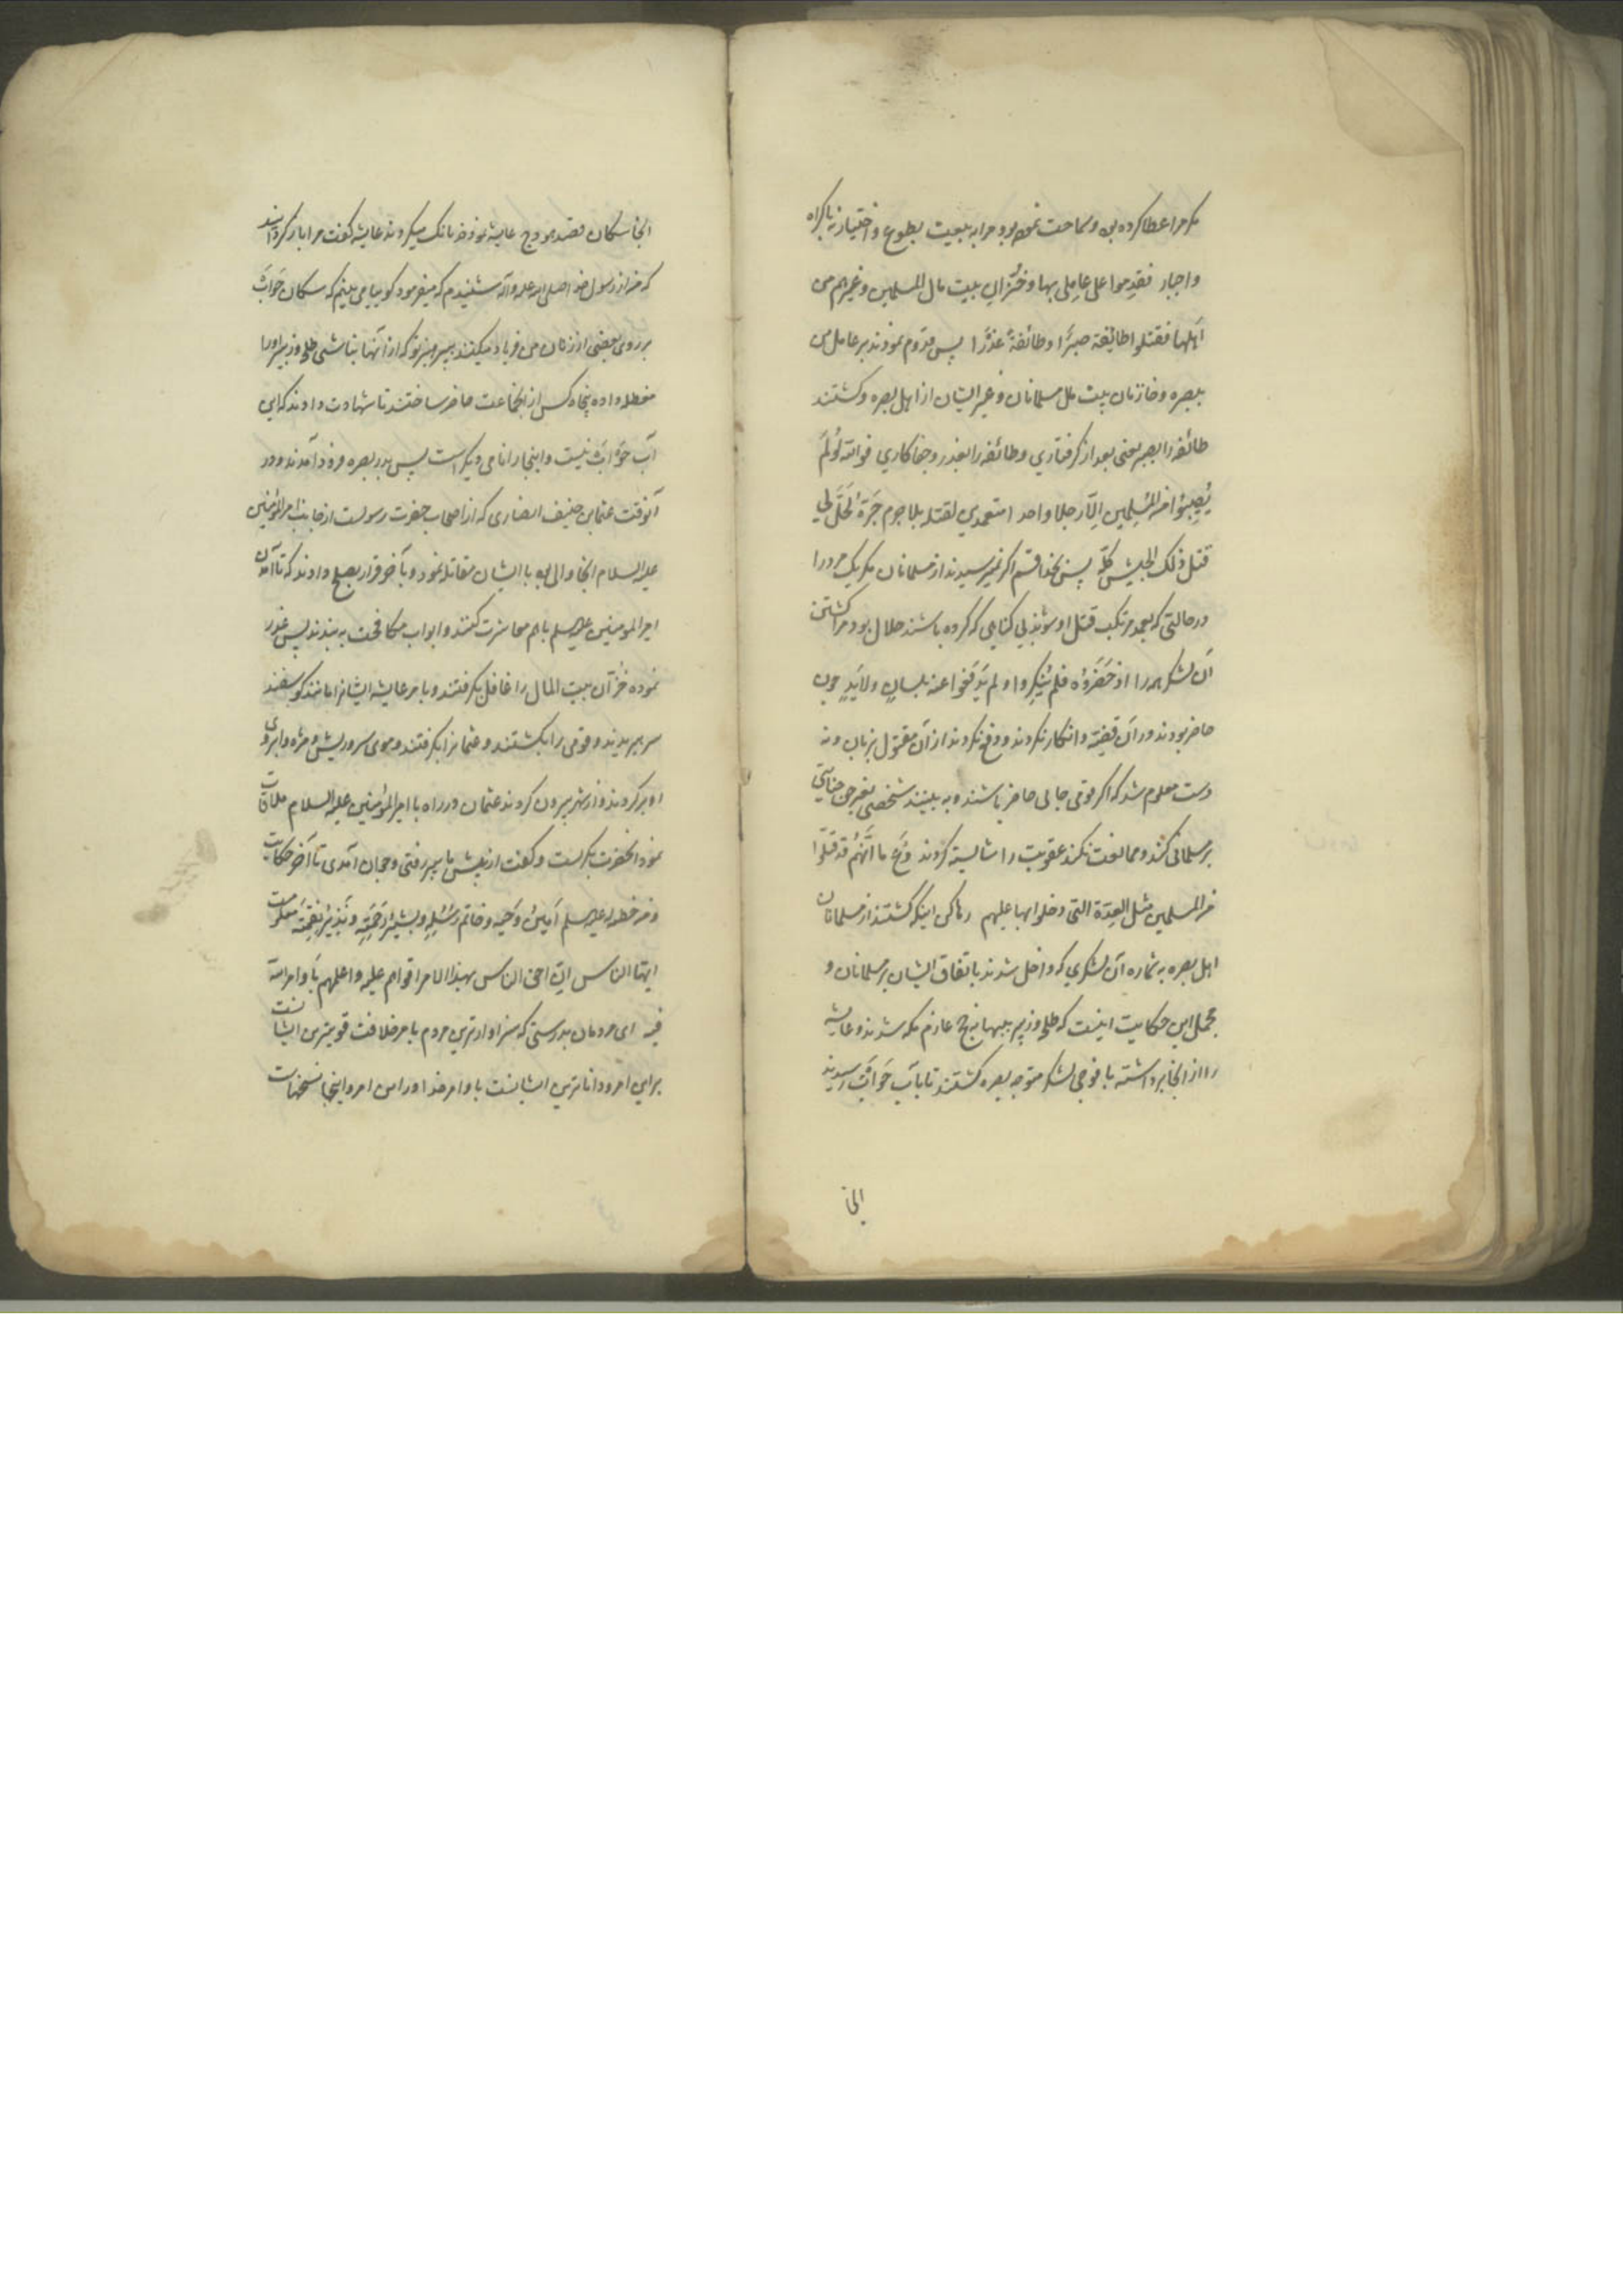 مگر مرا عطا کرده بود و سماحت نموده بود مرا به بیعت بطوع و اختیار نه باکراه
و اجبار فقدموا علی عاملی بها و خُزّان بیت مال المسلمین و غیرهم من
اَهلها فقتلوا طائفة صبرًا و طائفة غدرًا پس قدوم نمودند بر عامل من
ببصره و خازنان بیت مال مسلمانان و غیر ایشان از اهل بصره و کشتند
طائفه را بصبر یعنی بعد از گرفتاری و طائفه را بغدر و جفاکاری فوالله لَو لَم
یُصیبُوا من المُسلِمین اِلّا رجلا واحدا متعمدین لقتله بلا جرم جَرَّهُ لَحَلَّ لی
قتل ذلک الجیش کلّه پس بخدا قسم اگر نمیرسیدند از مسلمانان مگر یک مرد را
در حالتی که بعمد مرتکب قتل او شوند بی گناهی که کرده باشند حلال بود مرا کشتن
آن لشکر همه را اذ حَضَرُوهُ فلم یُنکِروا و لم یَدفَعُوا عنه بلسانٍ ولا یَدٍ چون
حاضر بودند در آن قضیّه و انکار نکردند و دفع نکردند از آن مقتول بزبان و نه
دست معلوم شد که اگر قومی جایی حاضر باشند و به بینند شخصی بغیر حق جنایتی
بر مسلمانی کند و ممانعت نکنند عقوبت را شایسته گردند دَع ما اَنّهُم قد قتلوا
من المسلمین مثل العِدّة التی دخلوا بها علیهم رها کن اینکه کشتند از مسلمانان
اهل بصره به شماره آن لشکری که داخل شدند باتفاق ایشان بر مسلمانان و
مجمل این حکایت اینست که طلحه و زبیر ببهانه حج عازم مکه شدند و عایشه
را از آنجا برداشته با فوجی لشکر متوجه بصره گشتند تا بآب حَوأَب رسیدند
آنجا
آنجا سگان قصد هودج عایشه نمودند بانگ میکردند عایشه گفت مرا باز گردانید
که من از رسول خدا صلی الله علیه و آله شنیدم که میفرمود گوییا می بینم که سگان حَوأَب
بر روی بعضی از زنان من فریاد میکنند بپرهیز تو که از آنها نباشی طلحه و زبیر او را
مغلطه داده پنجاه کس از آنجماعت حاضر ساختند تا شهادت دادند که این
آب حَوأَب نیست و اینجا را نامی دیگر است پس بدر بصره فرود آمدند و در
آنوقت عثمان بن حنیف انصاری که از اصحاب حضرت رسولست از جانب امیر المؤمنین
علیه السلام آنجا والی بود با ایشان مقاتله نمود و بآخر قرار بصلح دادند که تا آمدن
امیر المومنین علیه السلم با هم معاشرت کنند و ابواب مکافحت به بندند پس غدر
نموده خُزّان بیت المال را غافل بگرفتند و بامر عایشه ایشانرا مانند گوسفند
سر ببریدند و قومی را بکشتند و عثمانرا بگرفتند و موی سر و ریش و مژه و ابروی
او بر کردند و از شهر بیرون کردند عثمان در راه با امیر المؤمنین علیه السلام ملاقات
نمود آنحضرت بگریست و گفت از پیش ما پیر رفتی و جوان آمدی تا آخر حکایت
و من خطبه له علیه السلم اَمینُ وَحیِه و خاتم رُسُلِه و بشیرُ رَحمَتِه و نَذیرُ نِقمَتِه
ایّها الناس انّ احق الناس بهذا الامر اقواهم علیه و اعلمهم باَمر الله
فیه ای مردمان بدرستی که سزاوارترین مردم بامر خلافت قویترین ایشانست
براین امر و داناترین ایشانست باوامر خدا در این امر و اینجا